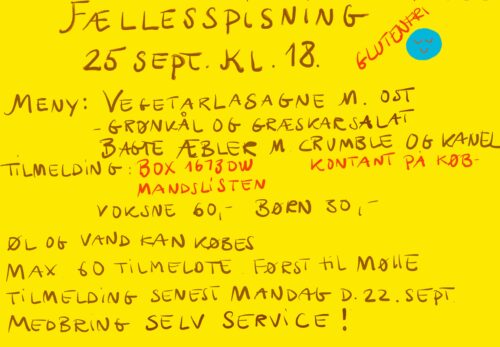 FÆLLESSPISNING
25 SEPT. KL. 18.
GLUTENFRI
MENY: VEGETARLASAGNE M. OST
- GRØNKÅL OG GRÆSKARSALAT
BAGTE ÆBLER M CRUMBLE OG KANEL
TILMELDING: BOX 1673DW KONTANT PÅ KØB-
MANDSLISTEN
VOKSNE 60,- BØRN 30,-
ØL OG VAND KAN KØBES
MAX 60 TILMELDTE. FØRST TIL MØLLE
TILMELDING SENEST MANDAG D. 22. SEPT.
MEDBRING SELV SERVICE!